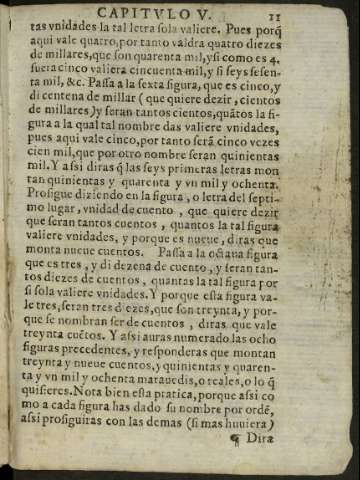 CAPITVLO V. 11
tas vnidades la tal letra sola valiere. Pues porq̃
aqui vale quatro, por tanto valdra quatro diezes
de millares, que son quarenta mil, y si como es 4.
fuera cinco valiera cincuenta mil, y si seys sesen-
ta mil, &c. Passa a la sexta figura, que es cinco, y
di centena de millar (que quiere dezir, cientos
de millares) y seran tantos cientos, quãtos la fi-
gura a la qual tal nombre das valiere vnidades,
pues aqui vale cinco, por tanto será cinco vezes
cien mil, que por otro nombre seran quinientas
mil. Y assi diras q̃ las seys primeras letras mon
tan quinientas y quarenta y vn mil y ochenta.
Prosigue diziendo en la figura, o letra del septi-
mo lugar, vnidad de cuento, que quiere dezir
que seran tantos cuentos, quantos la tal figura
valiere vnidades, y porque es nueue, diras que
monta nueue cuentos. Passa a la octaua figura
que es tres, y di dezena de cuento, y seran tan-
tos diezes de cuentos, quantas la tal figura por
si sola valiere vnidades. Y porque esta figura va-
le tres, seran tres diezes, que son treynta, y por-
que se nombran ser de cuentos, diras que vale
treynta cuẽtos. Y assi auras numerado las ocho
figuras precedentes, y responderas que montan
treynta y nueue cuentos, y quinientas y quaren-
ta y vn mil y ochenta marauedis, o reales, o lo q̃
quisieres. Nota bien esta pratica, porque assi co
mo a cada figura has dado su nombre por ordẽ,
assi prosiguiras con las demas (si mas huuiera)
¶ Dirá